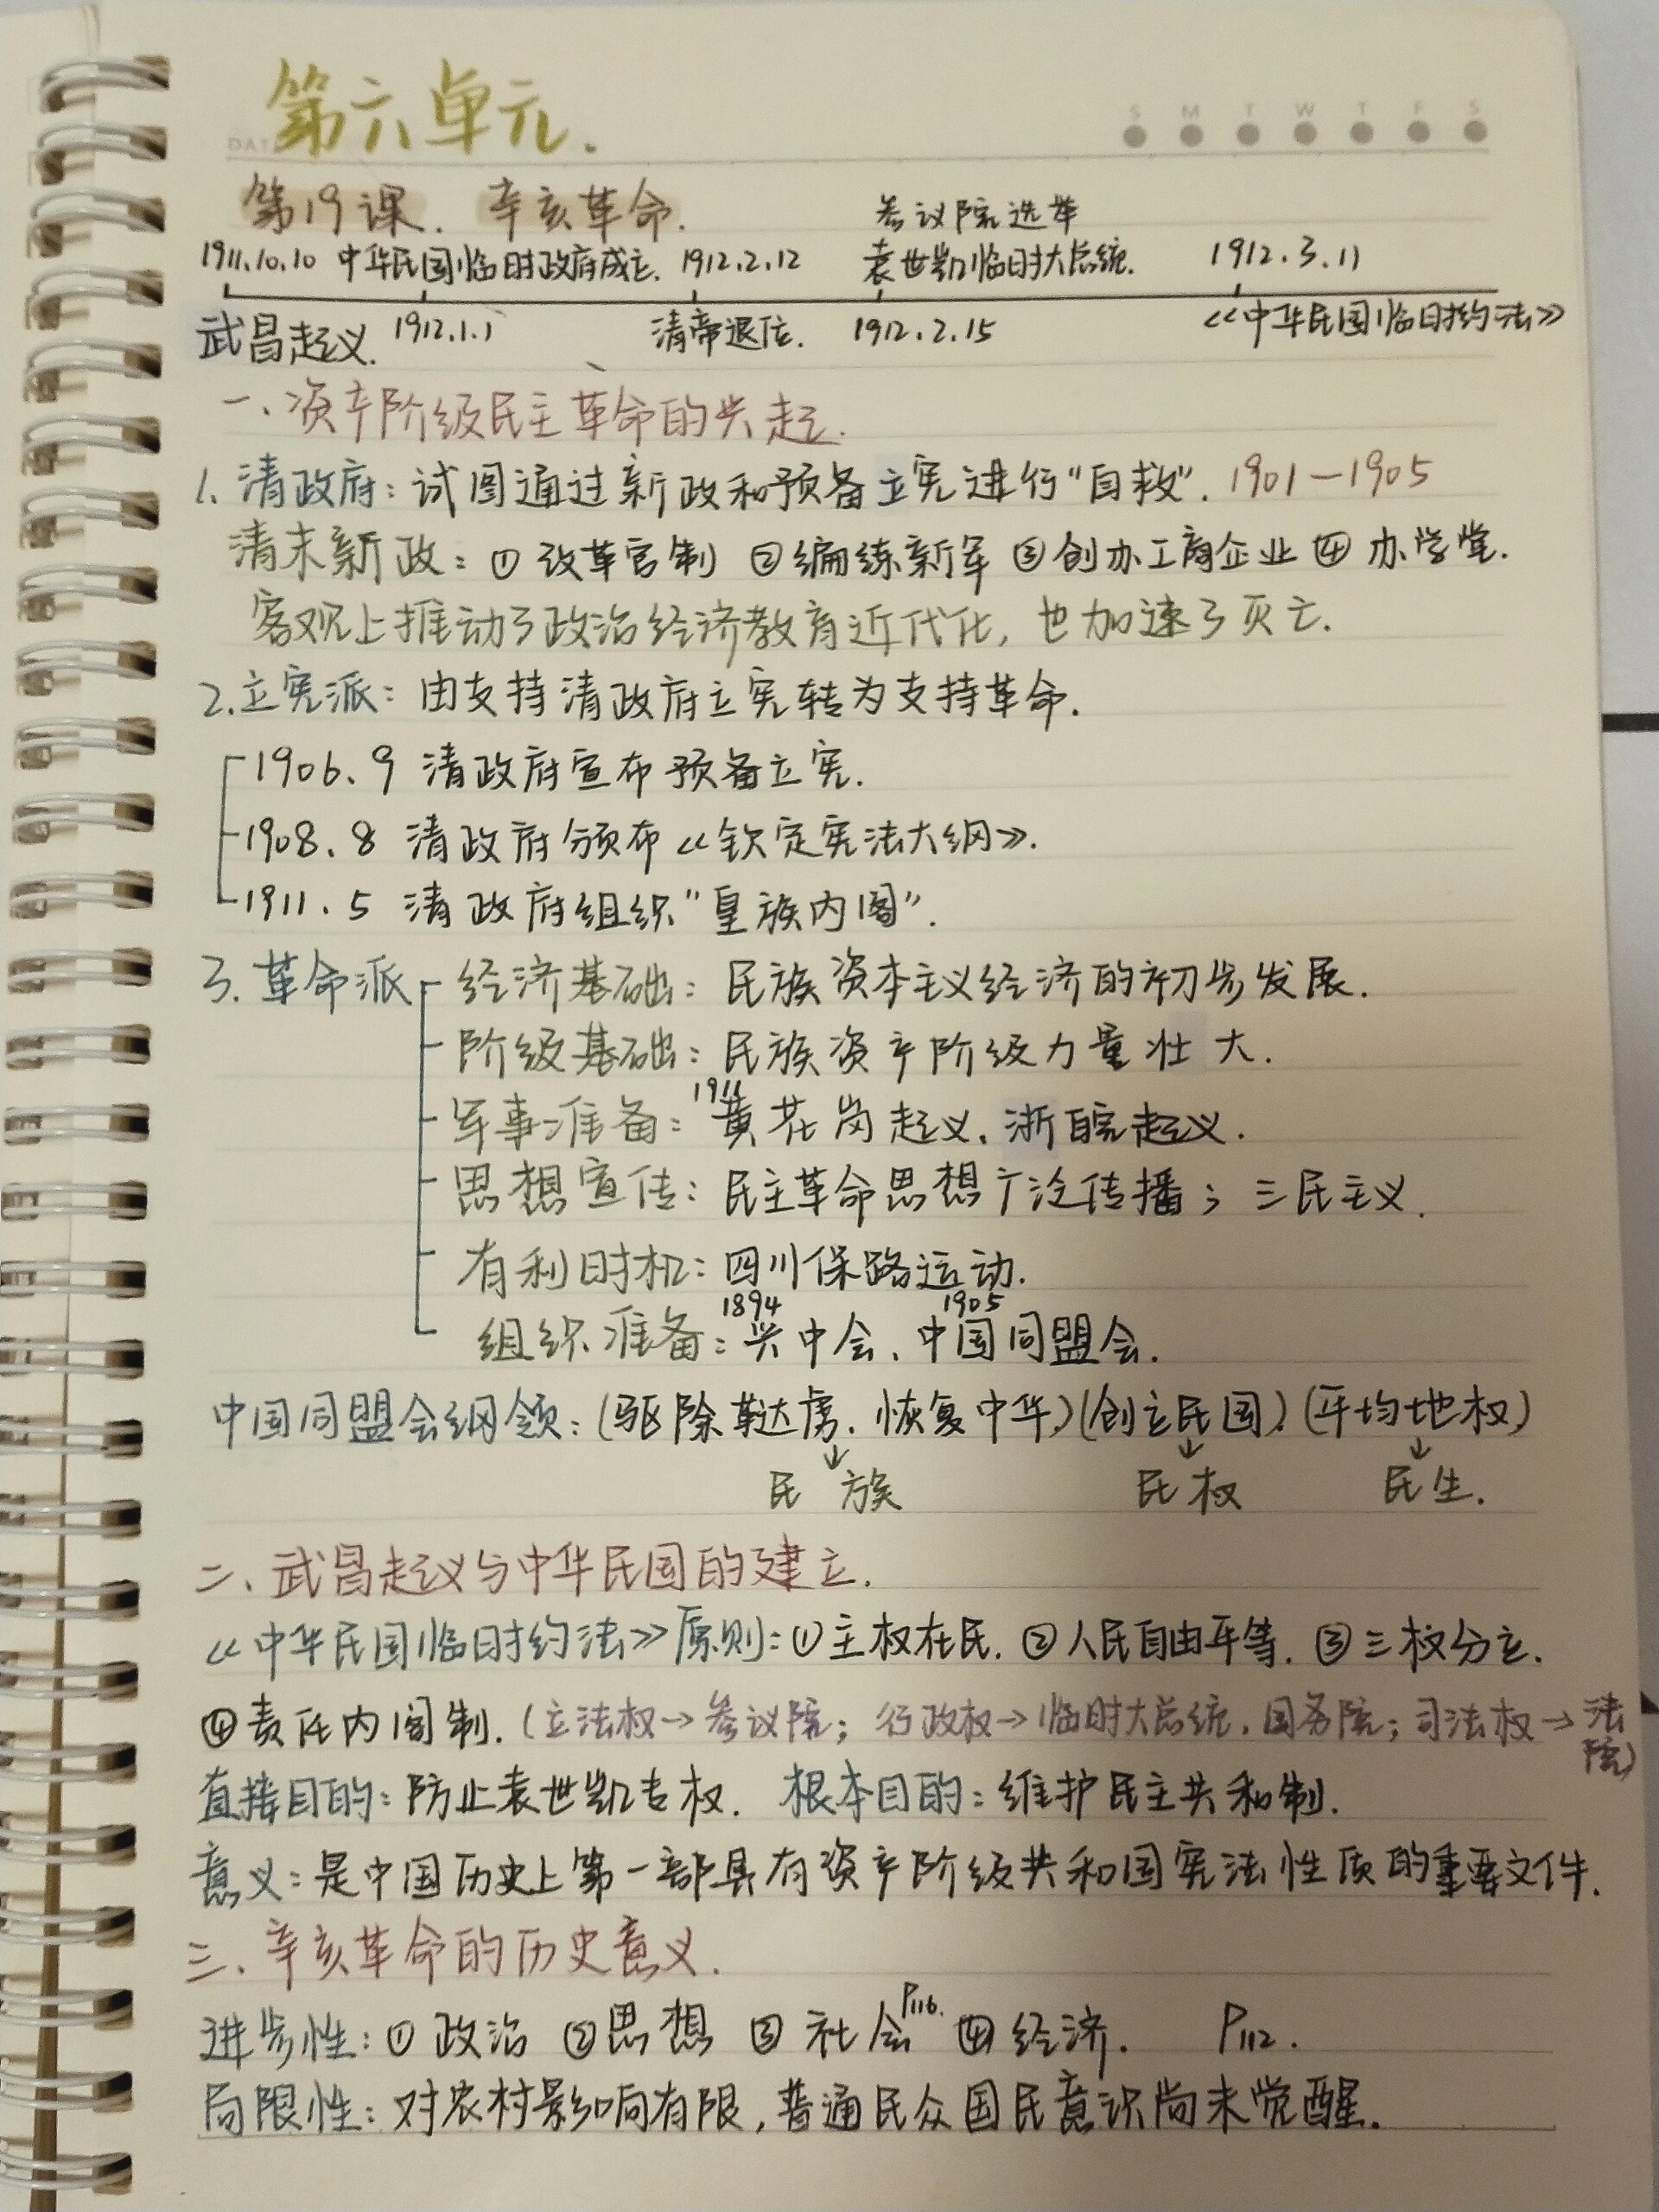 第六单元.
DATE
S M T W T F S
第19课. 辛亥革命.
参议院选举
1911.10.10 中华民国临时政府成立. 1912.2.12 袁世凯临时大总统. 1912.3.11
武昌起义. 1912.1.1 清帝退位. 1912.2.15 《中华民国临时约法》
一、资产阶级民主革命的兴起.
1. 清政府:试图通过新政和预备立宪进行"自救". 1901—1905
清末新政:①改革官制 ②编练新军 ③创办工商企业 ④办学堂.
客观上推动了政治经济教育近代化,也加速了灭亡.
2.立宪派:由支持清政府立宪转为支持革命.
1906.9 清政府宣布预备立宪.
1908.8 清政府颁布《钦定宪法大纲》.
1911.5 清政府组织"皇族内阁".
3.革命派 经济基础:民族资本主义经济的初步发展.
阶级基础:民族资产阶级力量壮大.
1911
军事准备:黄花岗起义.浙皖起义.
思想宣传:民主革命思想广泛传播;三民主义.
有利时机:四川保路运动.
1894 1905
组织准备:兴中会、中国同盟会.
中国同盟会纲领:(驱除鞑虏.恢复中华)(创立民国)(平均地权)
↓ ↓ ↓
民族 民权 民生.
二、武昌起义与中华民国的建立.
《中华民国临时约法》原则:①主权在民.②人民自由平等.③三权分立.
④责任内阁制.(立法权→参议院;行政权→临时大总统.国务院;司法权→法
院)
直接目的:防止袁世凯专权. 根本目的:维护民主共和制.
意义:是中国历史上第一部具有资产阶级共和国宪法性质的重要文件.
三、辛亥革命的历史意义.
进步性:①政治 ②思想 ③社会P116. ④经济. P112.
局限性:对农村影响有限,普通民众国民意识尚未觉醒.